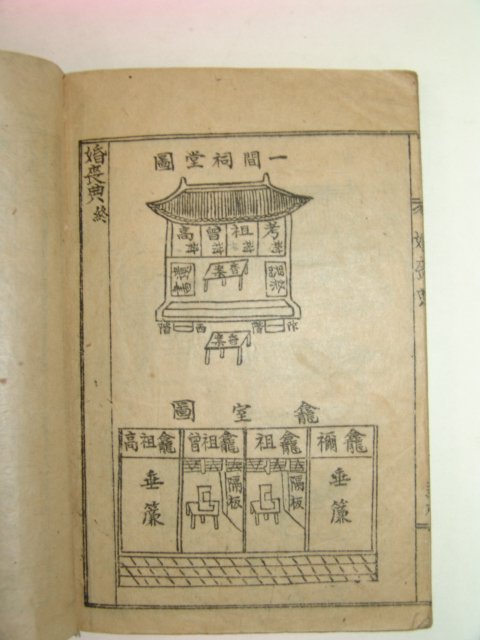 一間祠堂圖
考
祖
曾
高
香案
阼階
西階
香案
龕室圖
禰龕
祖龕
曾祖龕
高祖龕
垂簾
隔板
隔板
垂簾
婚喪典 終